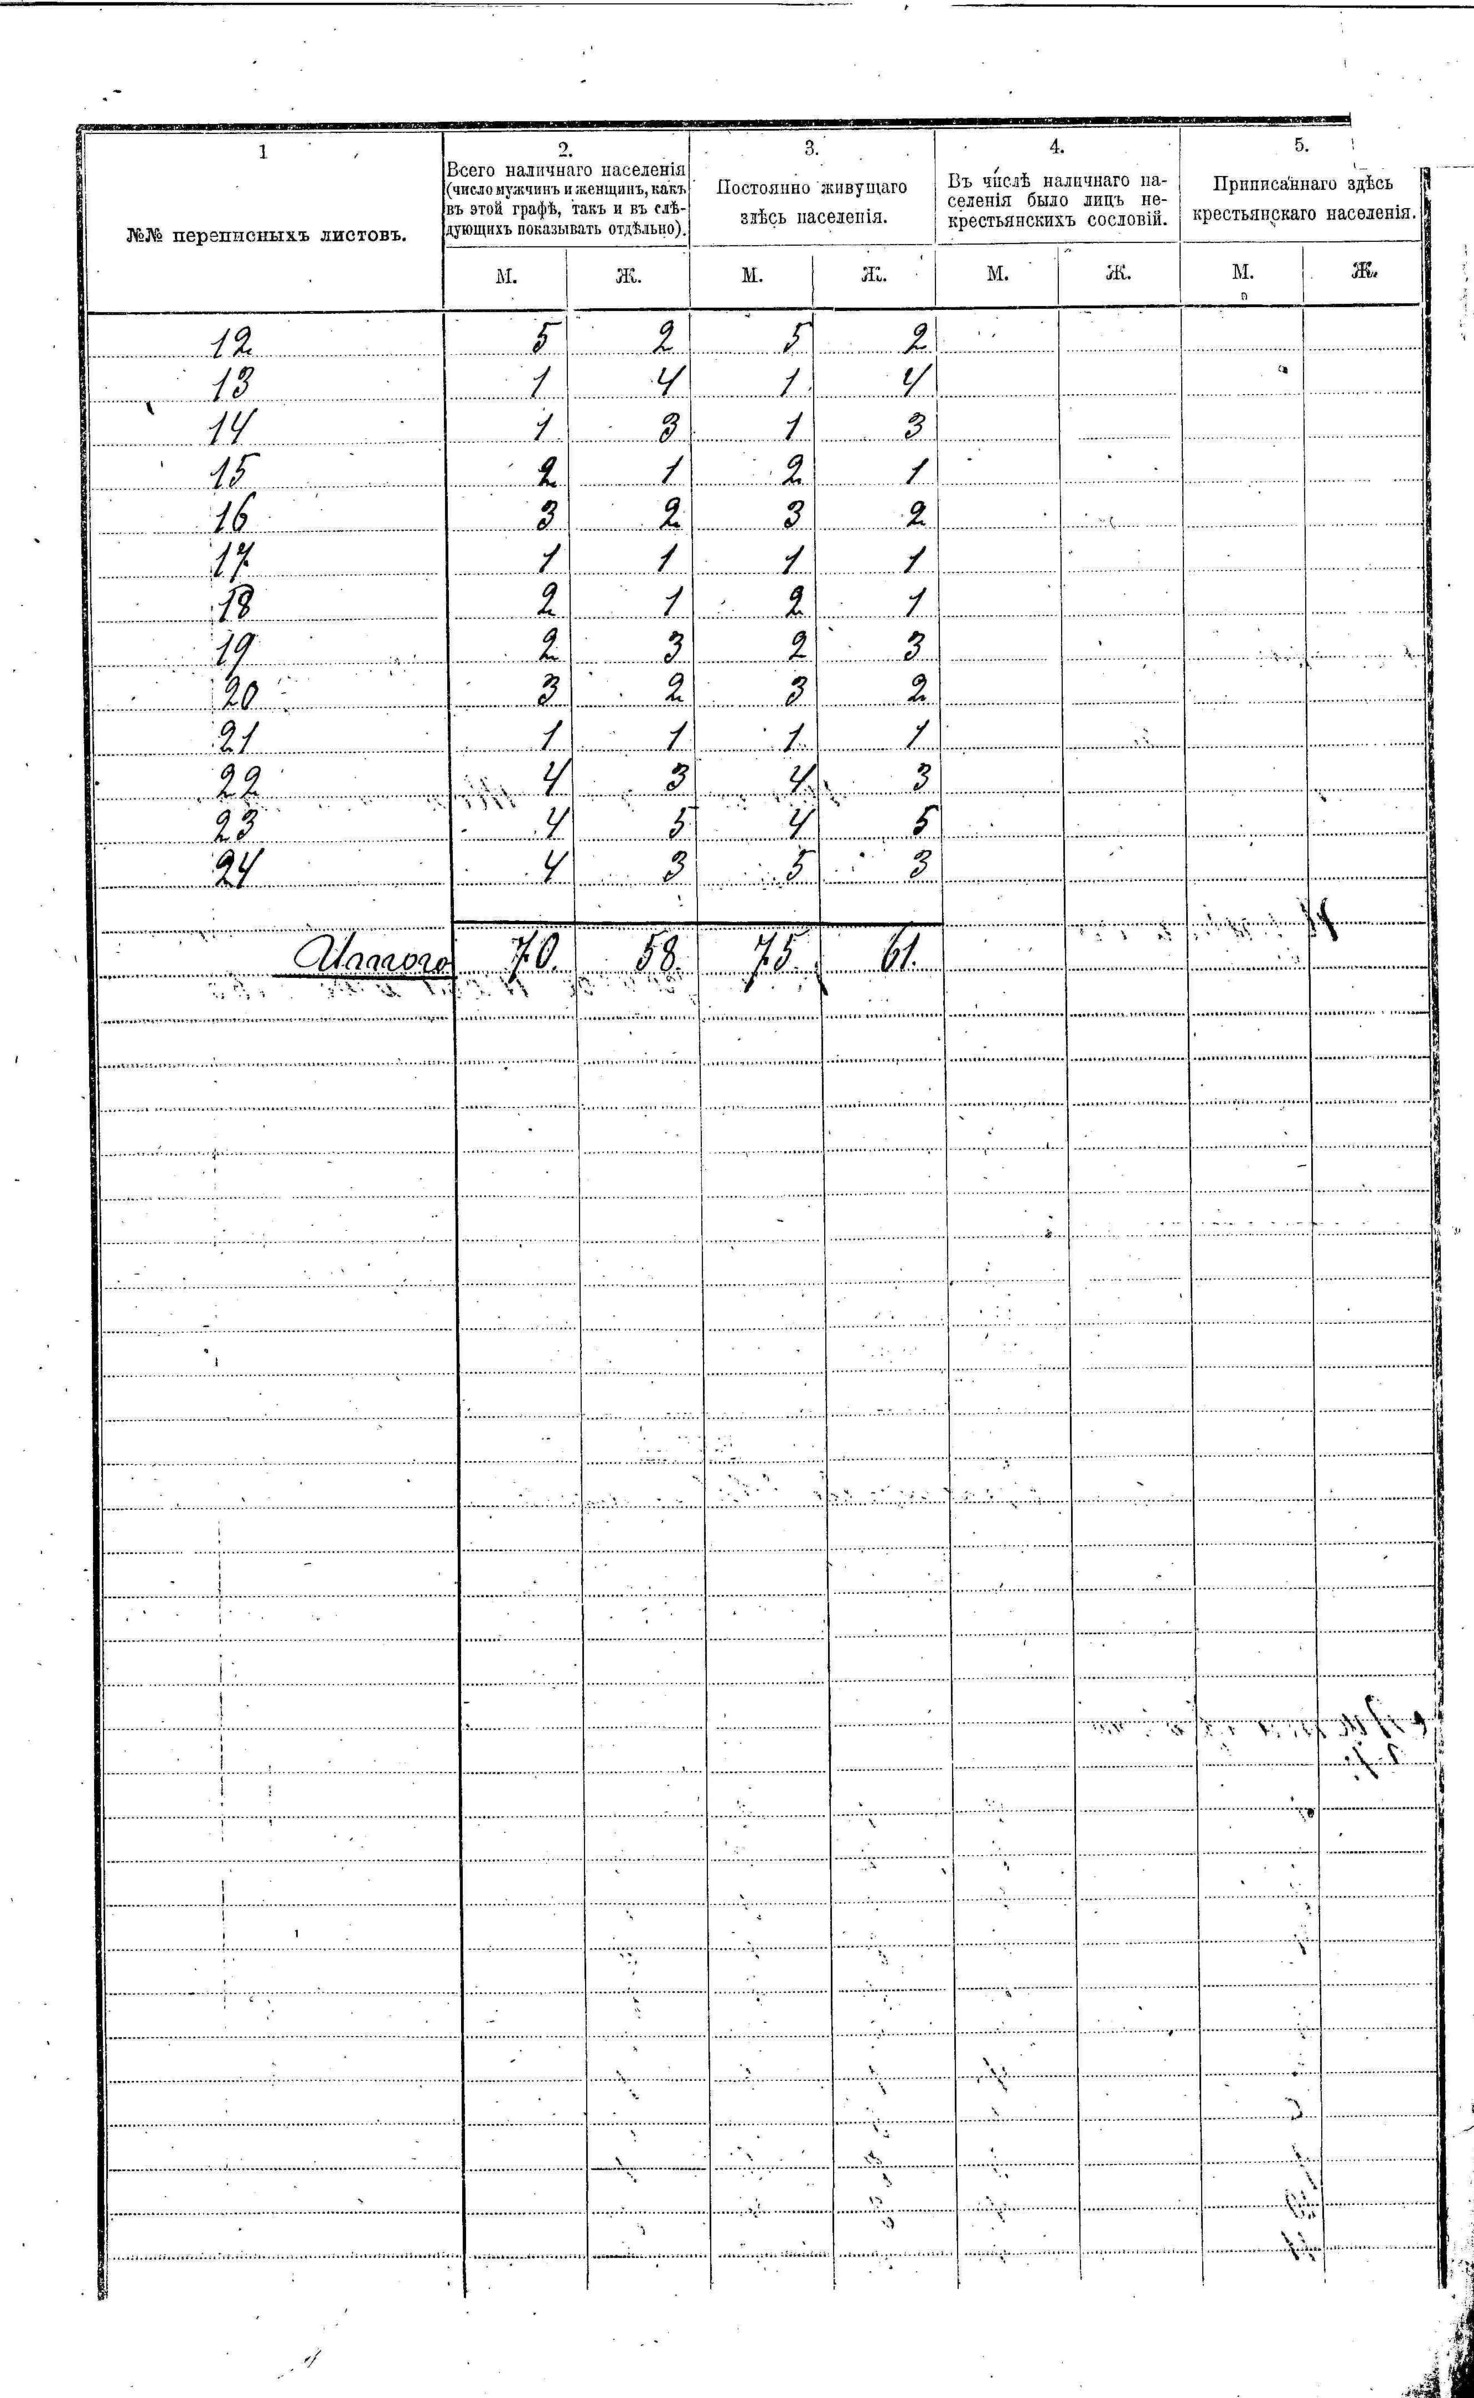 1
№№ переписныхъ листовъ.
2.
Всего наличнаго населенія
(число мужчинъ и женщинъ, какъ
въ этой графѣ, такъ и въ слѣ-
дующихъ показывать отдѣльно).
3.
Постоянно живущаго
здѣсь населенія.
4.
Въ числѣ наличнаго на-
селенія было лицъ не-
крестьянскихъ сословій.
5.
Приписаннаго здѣсь
крестьянскаго населенія.
М. Ж. М. Ж. М. Ж. М. Ж.
12 5 2 5 2
13 1 4 1 4
14 1 3 1 3
15 2 1 2 1
16 3 2 3 2
17 1 1 1 1
18 2 1 2 1
19 2 3 2 3
20 3 2 3 2
21 1 1 1 1
22 4 3 4 3
23 4 5 4 5
24 4 3 5 3
Итого 70. 58. 75. 61.